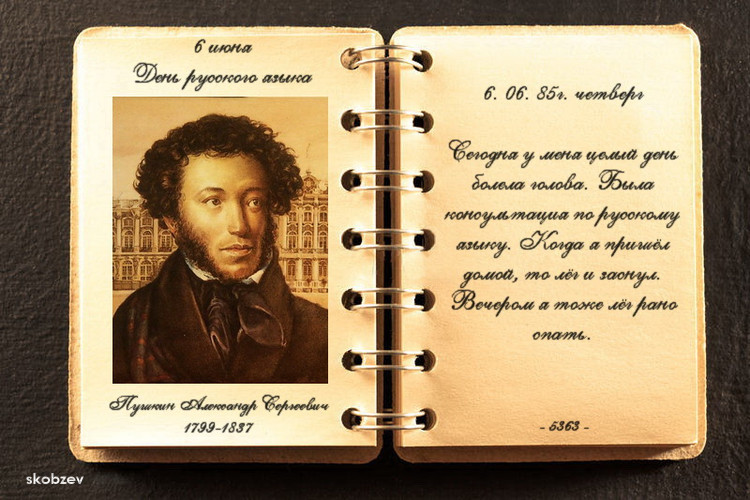 6 июня
День русского языка
Пушкин Александр Сергеевич
1799-1837
6. 06. 85г. четверг
Сегодня у меня целый день
болела голова. Была
консультация по русскому
языку. Когда я пришёл
домой, то лёг и заснул.
Вечером я тоже лёг рано
спать.
- 5363 -
skobzev